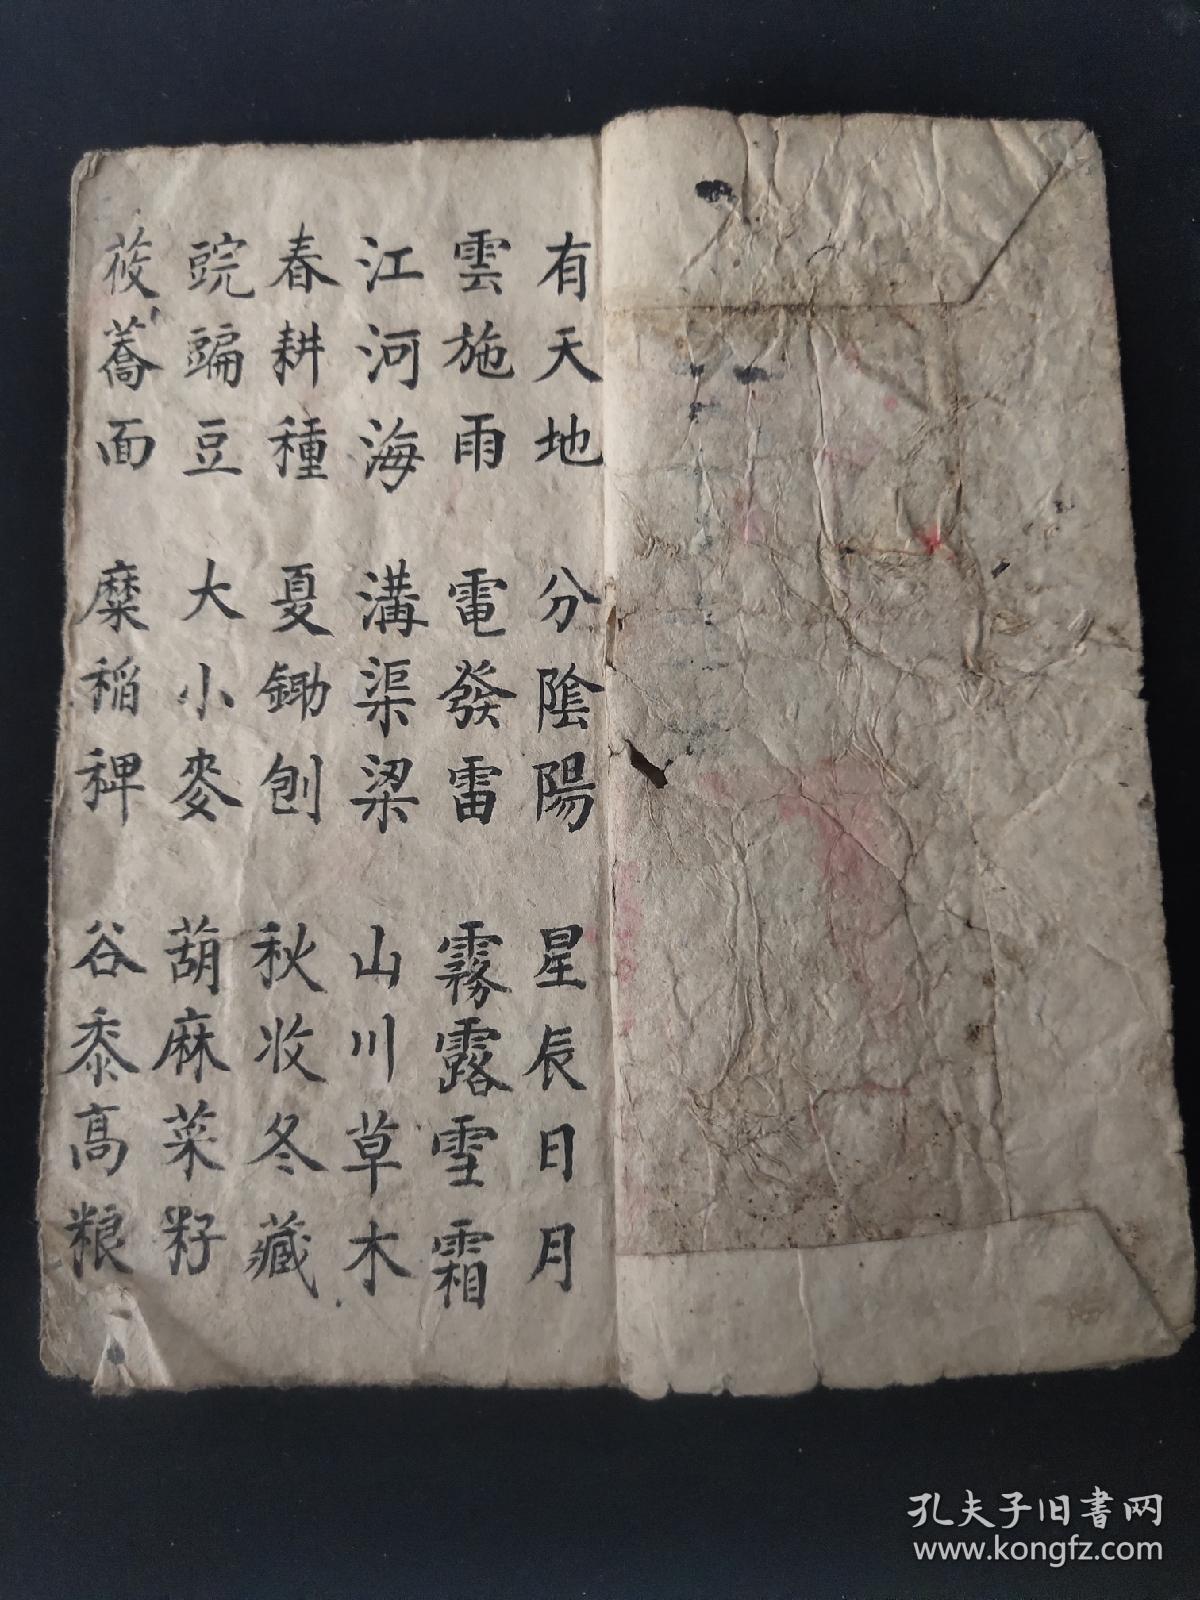 有天地 分陰陽 星辰日月
雲施雨 電發雷 霧露雪霜
江河海 溝渠梁 山川草木
春耕種 夏鋤刨 秋收冬藏
豌豍豆 大小麥 葫麻菜籽
莜蕎面 糜稻稗 谷黍高粮
孔夫子旧書网
www.kongfz.com